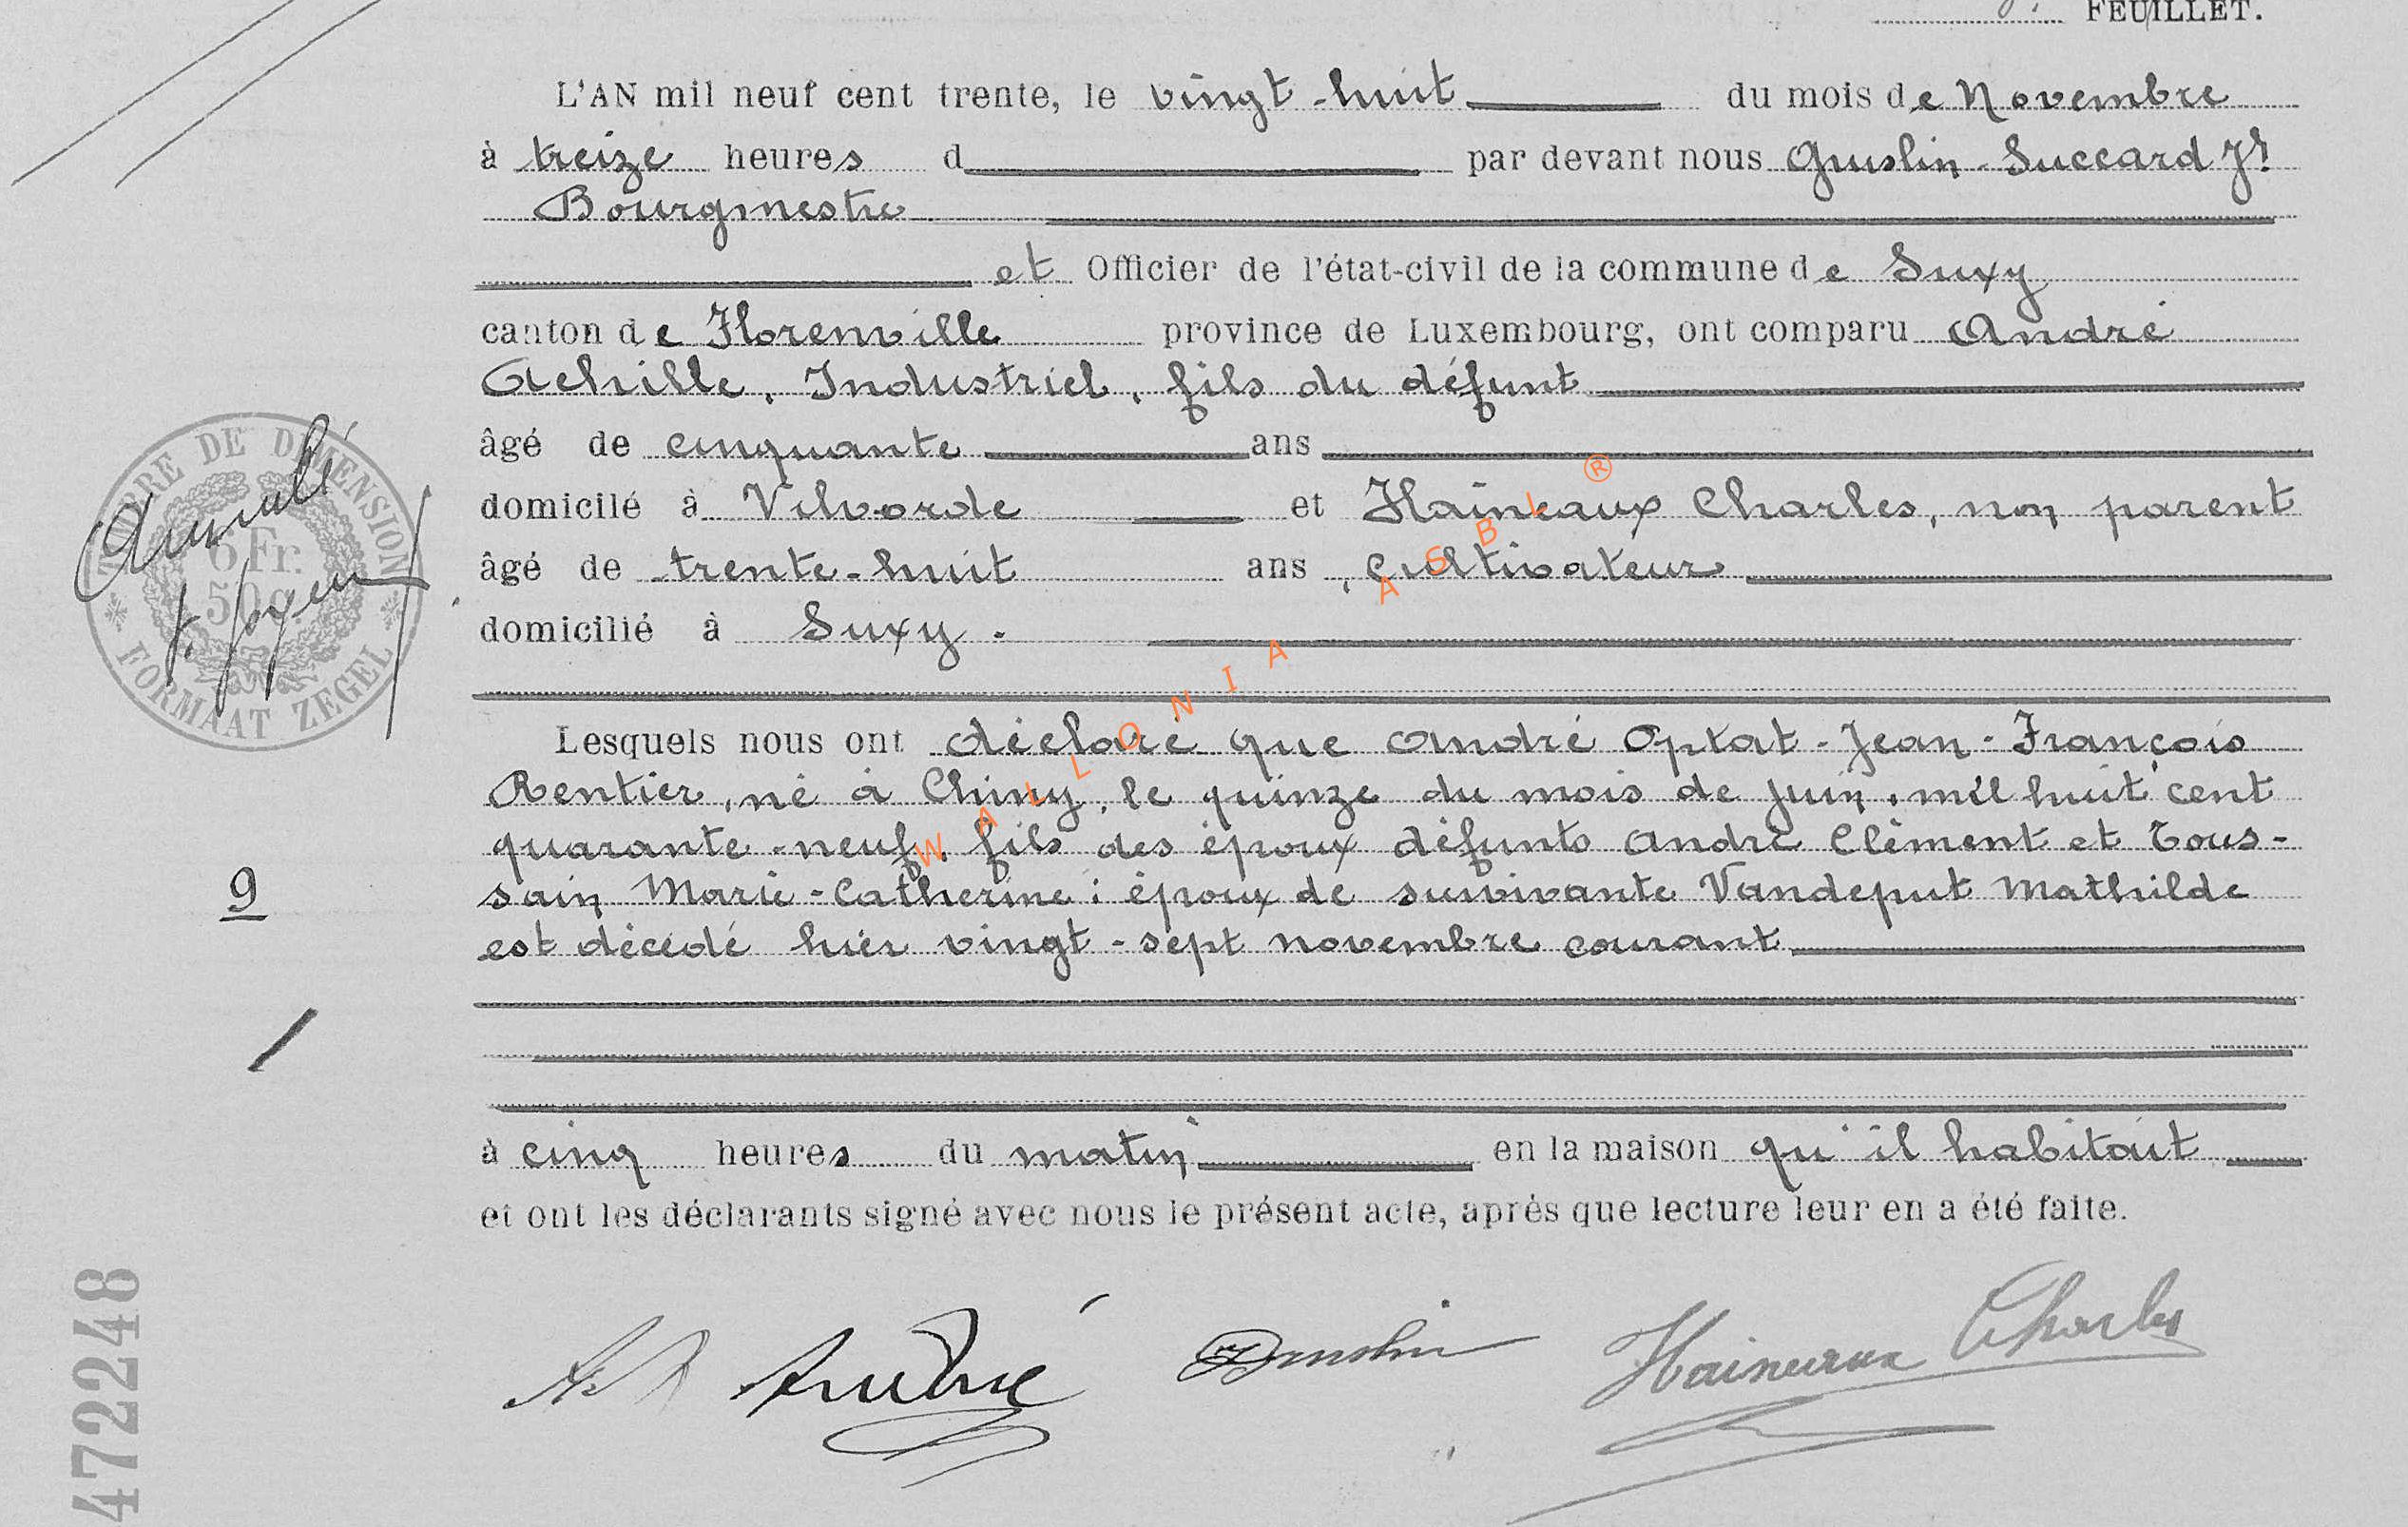 FEUILLET.
L'AN mil neuf cent trente, le vingt-huit du mois de Novembre
à treize heures d par devant nous Gruslin-Succard Js
Bourgmestre
et Officier de l'état-civil de la commune de Suxy
canton de Florenville province de Luxembourg, ont comparu André
Achille, Industriel, fils du défunt
âgé de cinquante ans
domicilé à Vilvorde et Haineaux Charles, non parent
âgé de trente-huit ans, Cultivateur
domicilié à Suxy.
Lesquels nous ont déclaré que André Optat-Jean-François
Rentier, né à Chiny, le quinze du mois de Juin, mil huit cent
quarante-neuf, fils des époux défunts André Clément et Tous-
sain Marie-Catherine; époux de survivante Vandeput Mathilde
est décédé hier vingt-sept novembre courant
à cinq heures du matin en la maison qu'il habitait
et ont les déclarants signé avec nous le présent acte, après que lecture leur en a été faite.
André Gruslin Haineaux Charles
TIMBRE DE DIMENSION
6 Fr.
50 c.
FORMAAT ZEGEL
Annulé
9
472248
WALLONIA ASBL ®